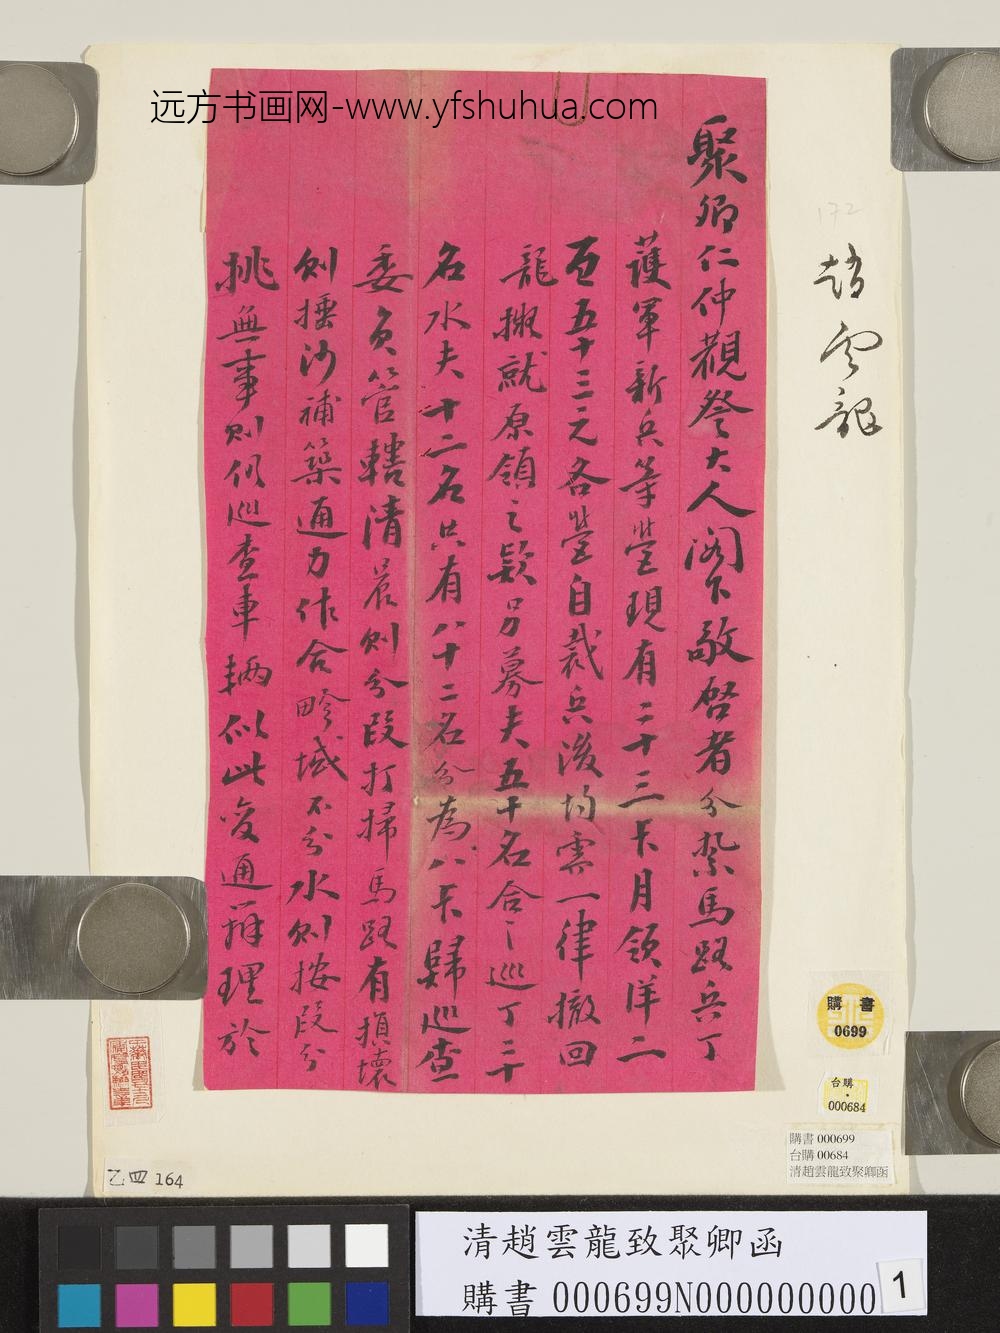 远方书画网-www.yfshuhua.com
聚卿仁仲觀詧大人閣下敬啓者分紮馬路兵丁
護軍新兵等營現有二十三卡月領洋二
百五十三元各營自裁兵後均雲一律撤回
龍擬就原領之款另募夫五十名合之巡丁二十
名水夫十二名共有八十二名分為八卡歸巡查
委員管轄清晨則分段打掃馬路有損壞
則捶沙補築通力作合畛域不分水則按段分
挑無事則仍巡查車輛似此變通辦理於
172
趙雲龍
購書
0699
台購
000684
購書 000699
台購 00684
清趙雲龍致聚卿函
乙四 164
清趙雲龍致聚卿函
購書 000699N000000000
1